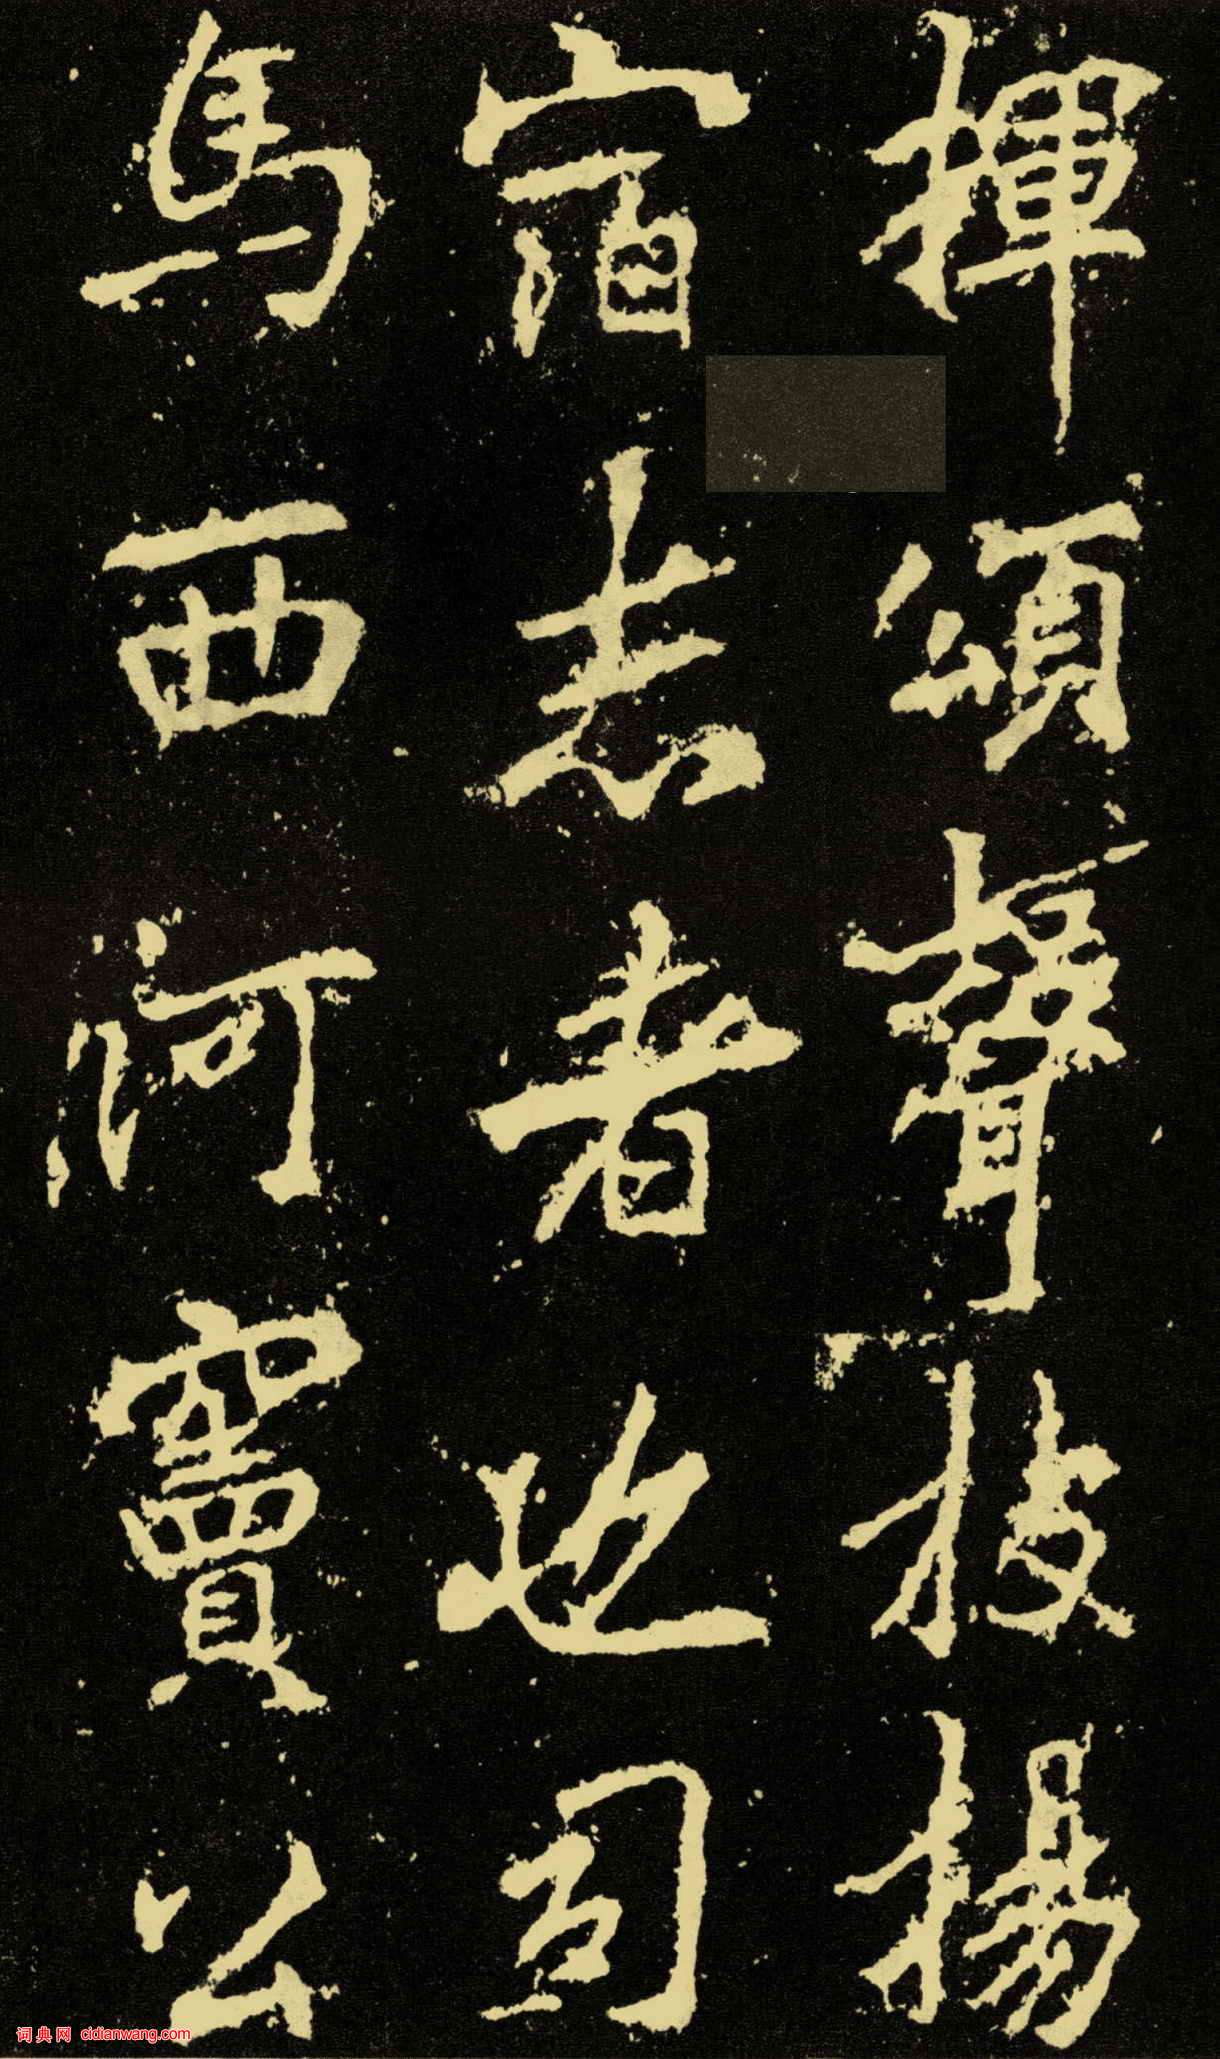 揮頌聲扙揚
宿志者也司
馬西河竇公
词典网 cidianwang.com